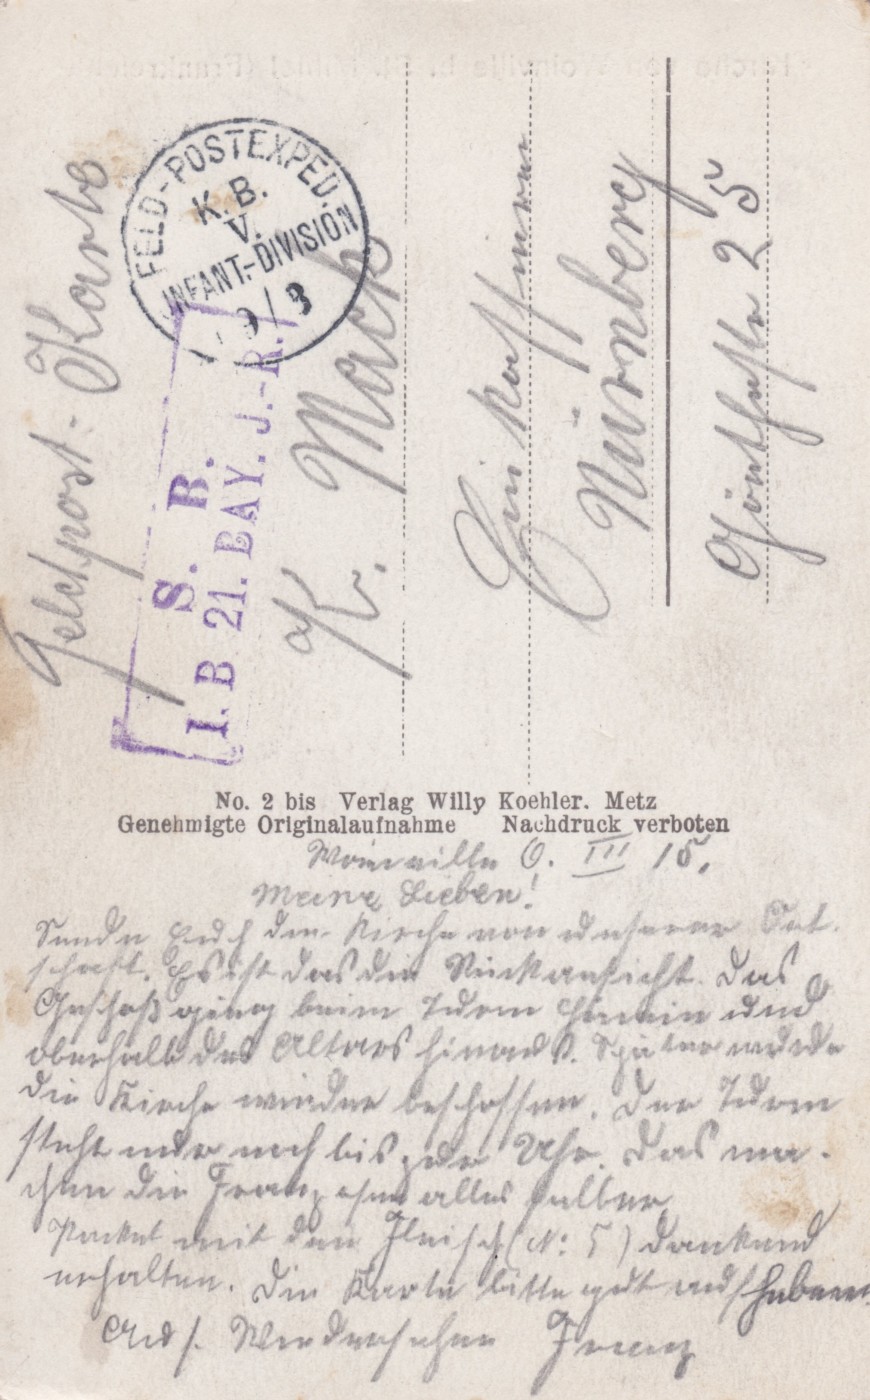 Feldpost-Karte
FELD-POSTEXPED.
K. B.
V.
INFANT.-DIVISION
9/3
S. B.
I. B 21. BAY. J.-R.
K. Mack
Nürnberg
25
No. 2 bis Verlag Willy Koehler. Metz
Genehmigte Originalaufnahme Nachdruck verboten
Woinville 6. III 15.
Meine Lieben!
Sende Euch die Kirche von unserer Ort-
schaft. Es ist das die Rückansicht. Das
Geschoß ging beim Turm hinein und
oberhalb des Altars hinaus. Später wurde
die Kirche wieder beschossen. Der Turm
steht nur noch bis zur Uhr. Das ma-
chen die Franzosen alles selber.
Packet mit den Fleisch (N: 5) dankend
erhalten. Die Karte bitte gut aufheben
Auf Wiedersehen Franz